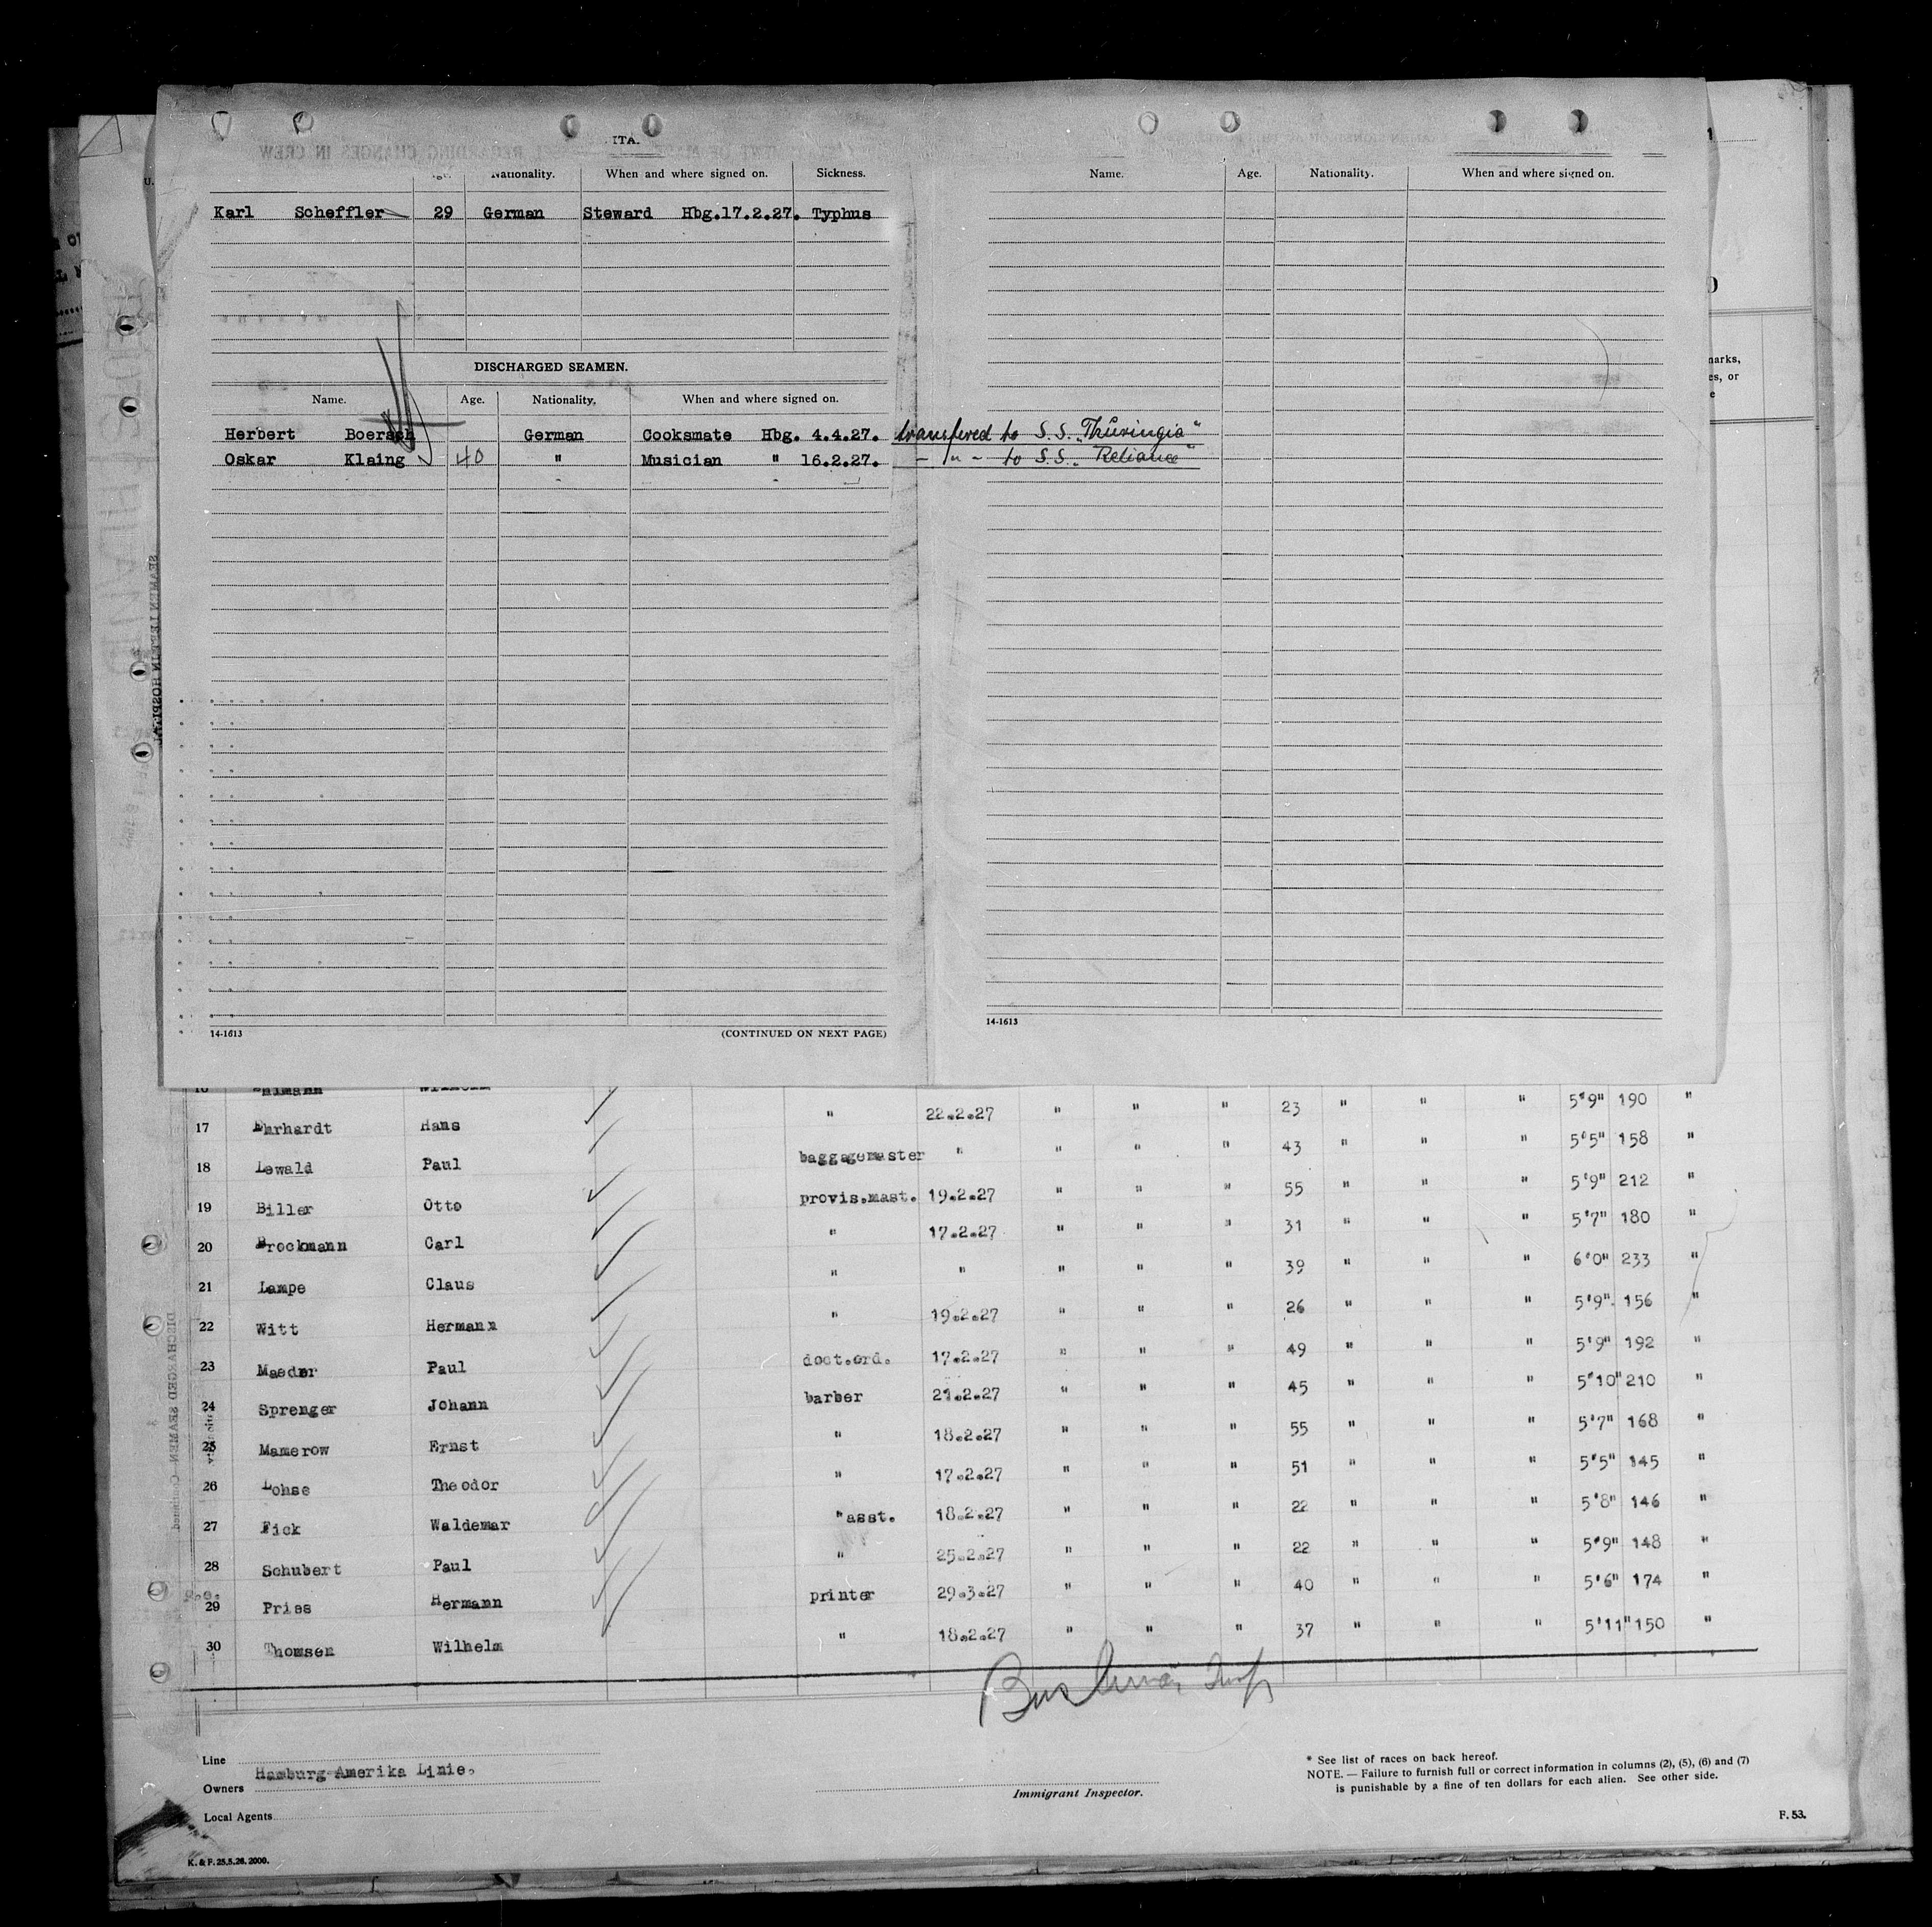 ITA.
Nationality. When and where signed on. Sickness.
Karl Scheffler 29 German Steward Hbg.17.2.27. Typhus
DISCHARGED SEAMEN.
Name. Age. Nationality. When and where signed on.
Herbert Boersch German Cooksmate Hbg. 4.4.27. transfered to S.S. „Thüringia"
Oskar Klaing 40 " Musician " 16.2.27. - " - to S.S. „Reliance"
14-1613 (CONTINUED ON NEXT PAGE)
Name. Age. Nationality. When and where signed on.
14-1613
17 Ehrhardt Hans " 22.2.27 " " " 23 " " " 5'9" 190 "
18 Lewald Paul baggagemaster " " " " 43 " " " 5'5" 158 "
19 Biller Otto provis.mast. 19.2.27 " " " 55 " " " 5'9" 212 "
20 Brockmann Carl " 17.2.27 " " " 31 " " " 5'7" 180 "
21 Lampe Claus " " " " " 39 " " " 6'0" 233 "
22 Witt Hermann " 19.2.27 " " " 26 " " " 5'9" 156 "
23 Maeder Paul doct.ord. 17.2.27 " " " 49 " " " 5'9" 192 "
24 Sprenger Johann barber 21.2.27 " " " 45 " " " 5'10" 210 "
25 Mamerow Ernst " 18.2.27 " " " 55 " " " 5'7" 168 "
26 Lohse Theodor " 17.2.27 " " " 51 " " " 5'5" 145 "
27 Fick Waldemar " asst. 18.2.27 " " " 22 " " " 5'8" 146 "
28 Schubert Paul " 25.2.27 " " " 22 " " " 5'9" 148 "
29 Pries Hermann printer 29.3.27 " " " 40 " " " 5'6" 174 "
30 Thomsen Wilhelm " 18.2.27 " " " 37 " " " 5'11" 150 "
Line
Owners Hamburg-Amerika Linie.
Local Agents
Immigrant Inspector.
* See list of races on back hereof.
NOTE. — Failure to furnish full or correct information in columns (2), (5), (6) and (7)
is punishable by a fine of ten dollars for each alien. See other side.
F. 53.
K. & P. 25.5.26. 2000.